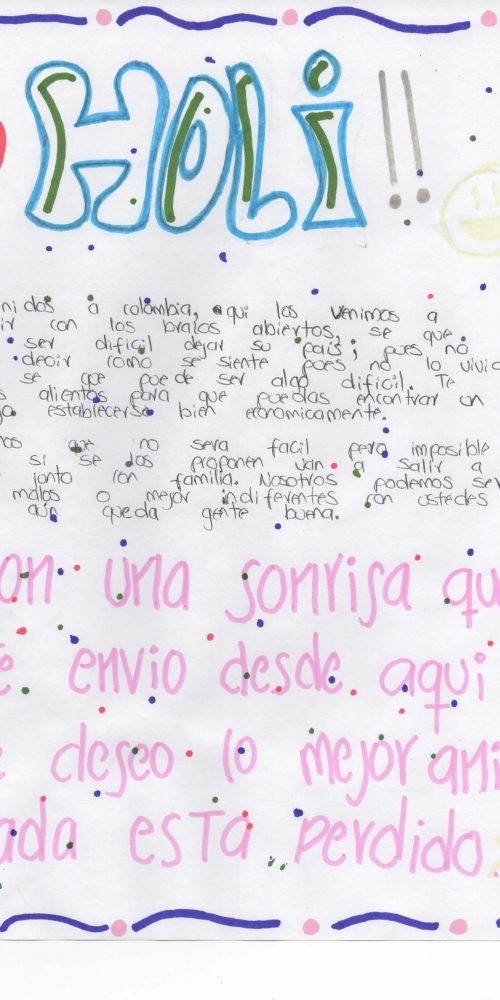 HOLi!!
nidos a colombia, aqui los venimos a
ir con los brazos abiertos, se que
ser dificil dejar su pais; pues no
decir como se siente pues no lo vivi
se que puede ser algo dificil. Te
alientos para que puedas encontrar un
establecerse bien economicamente.
mos que no sera facil pero imposible
si se los proponen van a salir a
junto con familia. Nosotros podemos ser
malos o mejor indiferentes con ustedes
aún queda gente buena.
on una sonrisa qu
e envio desde aqui
e deseo lo mejor ami
ada esta perdido